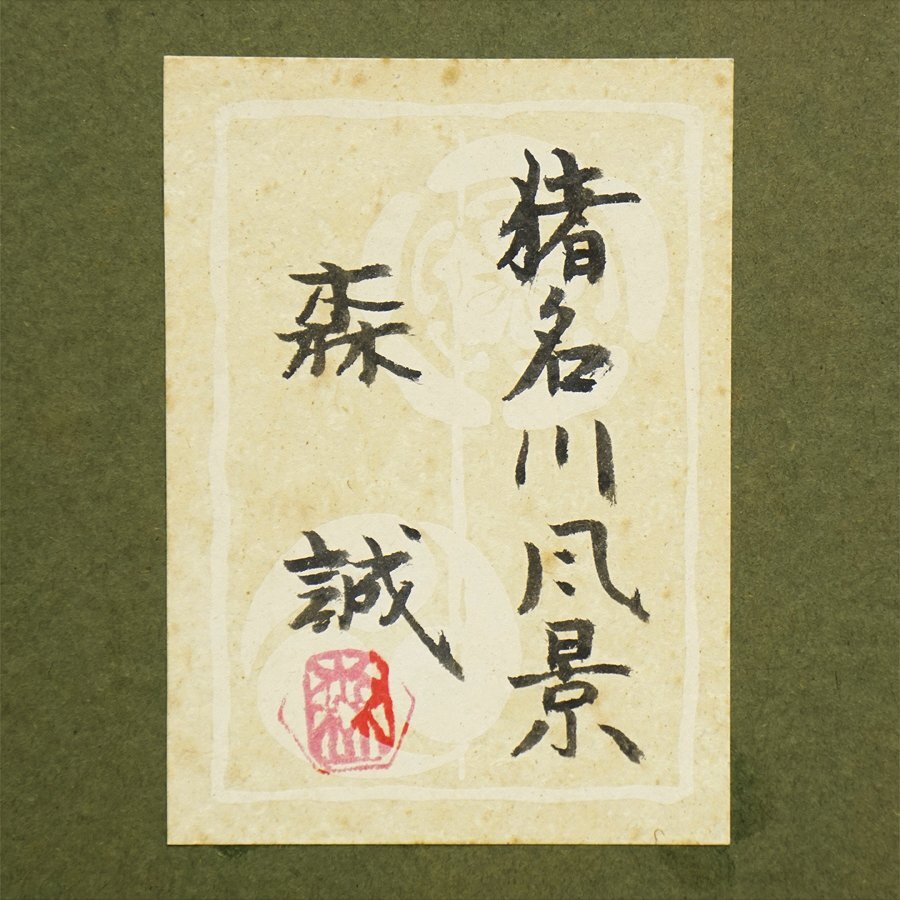 猪名川風景
森誠
森